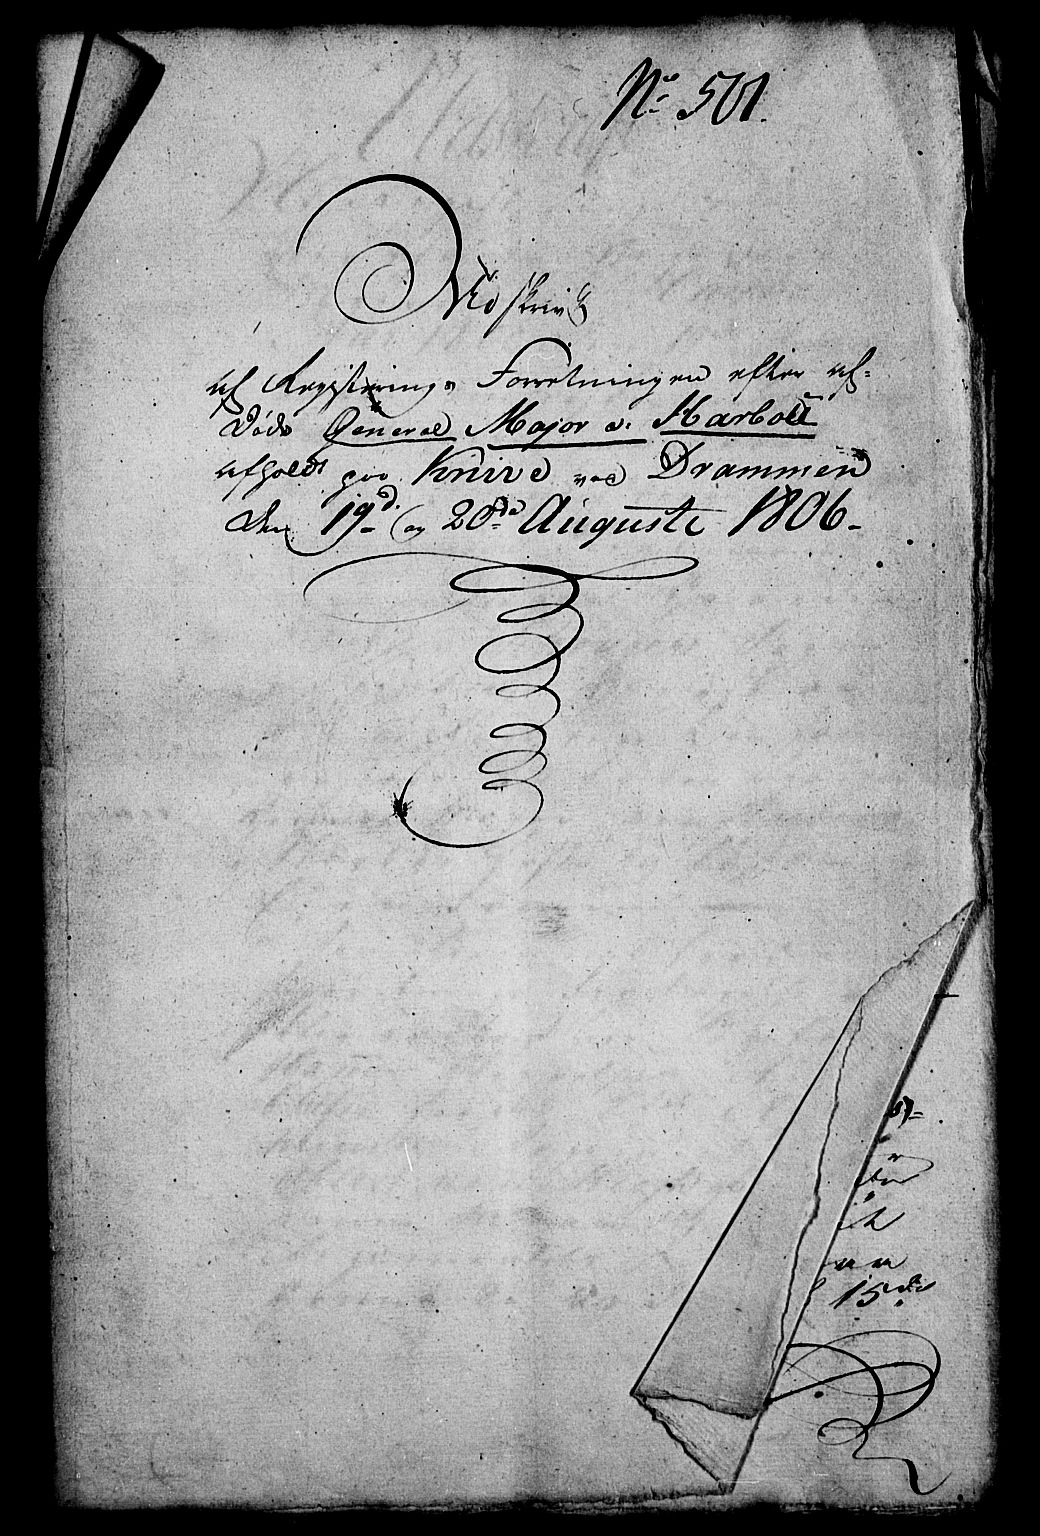 No 501.
Udskrivt
af Registerings Forretningen efter af-
døde General Major v: Harboe
afholdt paa Knive ved Drammen
den 19d. og 20de Auguste 1806.
15de